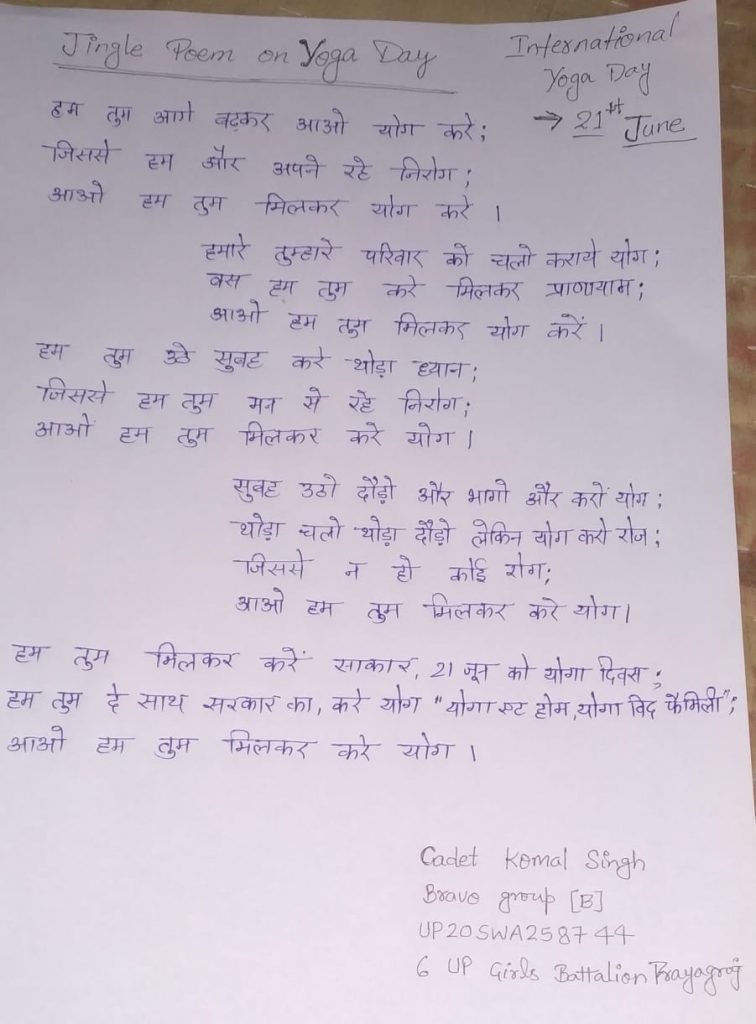 Jingle Poem on Yoga Day
International
Yoga Day
→ 21st June
हम तुम आगे बढ़कर आओ योग करे;
जिससे हम और अपने रहे निरोग;
आओ हम तुम मिलकर योग करे ।
हमारे तुम्हारे परिवार को चलो कराये योग;
बस हम तुम करे मिलकर प्राणायाम;
आओ हम तुम मिलकर योग करें ।
हम तुम उठे सुबह करे थोड़ा ध्यान;
जिससे हम तुम मन से रहे निरोग;
आओं हम तुम मिलकर करे योग ।
सुबह उठो दौड़ो और भागो और करों योग;
थोड़ा चलो थोड़ा दौड़ो लेकिन योग करो रोज;
जिससे न हो कोई रोग;
आओ हम तुम मिलकर करे योग।
हम तुम मिलकर करें साकार, 21 जून को योगा दिवस;
हम तुम दे साथ सरकार का, करे योग "योगा एट होम, योगा विद फैमिली";
आओ हम तुम मिलकर करे योग ।
Cadet Komal Singh
Bravo group [B]
UP20SWA258744
6 UP Girls Battalion Prayagraj